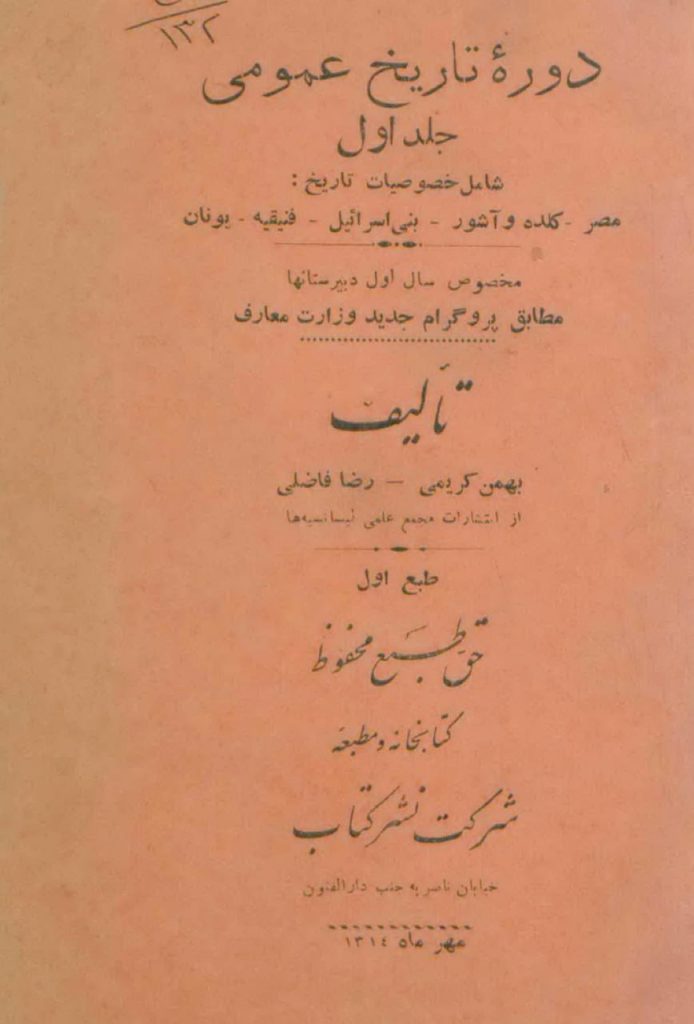 ۱۳۲
دورهٔ تاریخ عمومی
جلد اول
شامل خصوصیات تاریخ :
مصر - کلده و آشور - بنی‌اسرائیل - فنیقیه - یونان
مخصوص سال اول دبیرستانها
مطابق پروگرام جدید وزارت معارف
تألیف
بهمن کریمی — رضا فاضلی
از انتشارات مجمع علمی لیسانسیه‌ها
طبع اول
حق طبع محفوظ
کتابخانه و مطبعه
شرکت نشر کتاب
خیابان ناصریه جنب دارالفنون
مهر ماه ۱۳۱٤